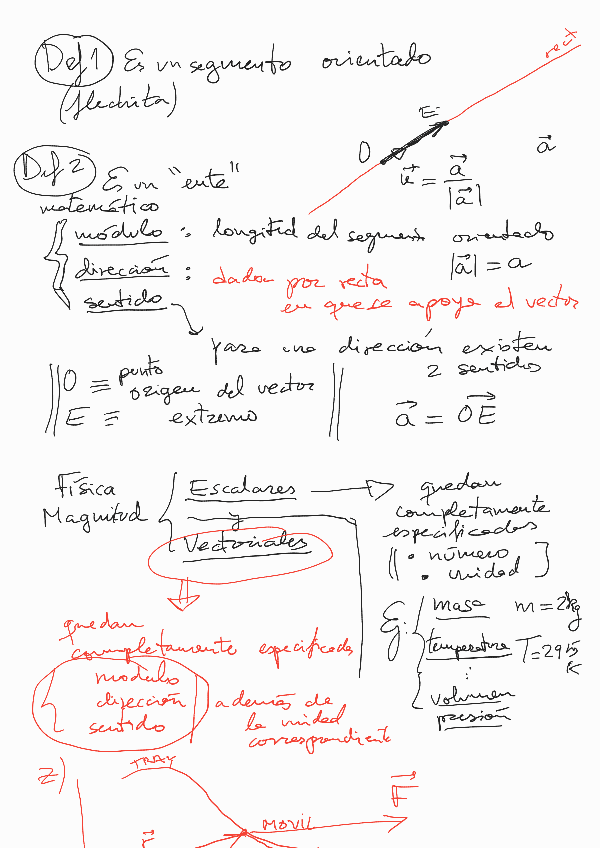 Def 1 Es un segmento orientado
(flechita)
recta
E
O
a⃗
u⃗ = a⃗ / |a⃗|
Def 2 Es un "ente"
matemático
módulo : longitud del segmento orientado
|a⃗| = a
dirección : dada por recta
en que se apoya el vector
sentido
para una dirección existen
2 sentidos
O ≡ punto
origen del vector
E ≡ extremo
a⃗ = OE⃗
Física
Magnitud
Escalares
y
Vectoriales
quedan
completamente
especificadas
• número
• unidad
Ej:
masa m = 2kg
temperatura T = 295
K
⋮
volumen
presión
quedan
completamente especificadas
módulo
dirección
sentido
además de
la unidad
correspondiente
z)
TRAY
MOVIL
F⃗
r⃗